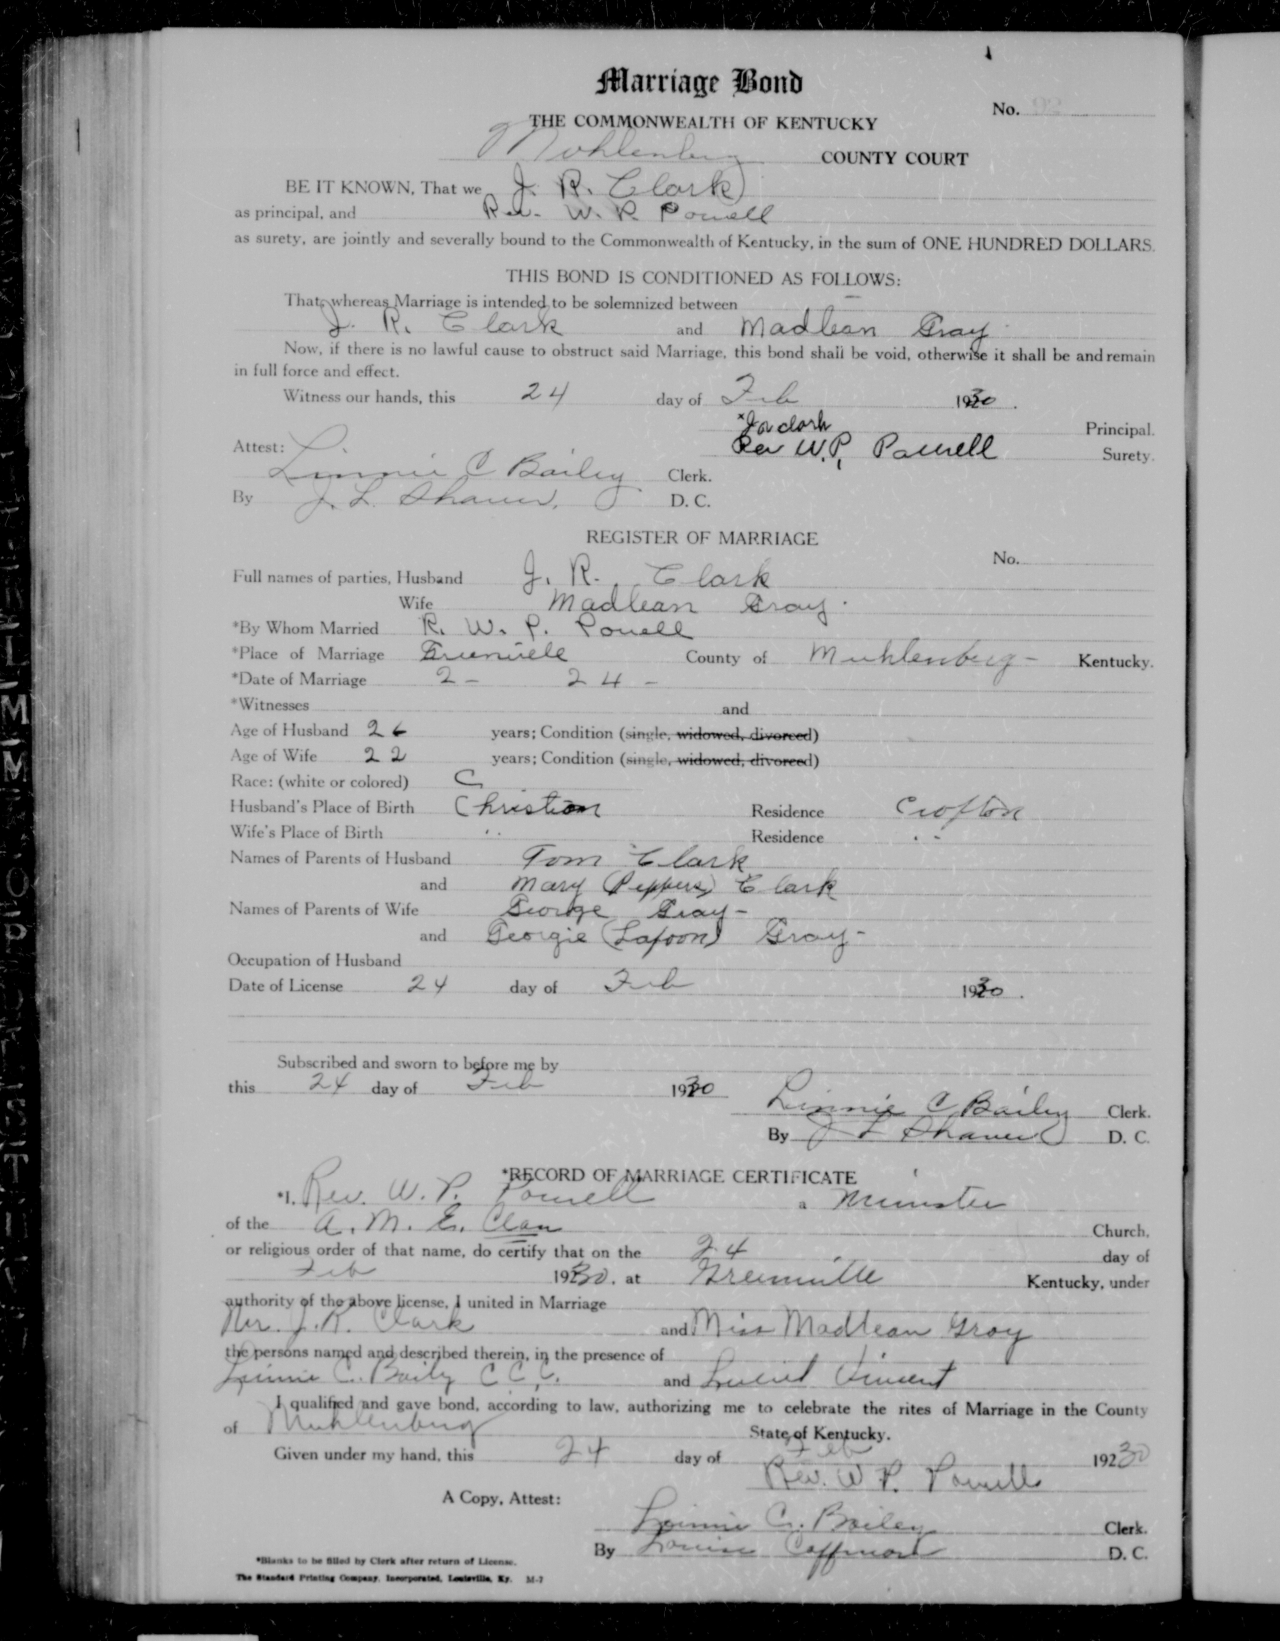 Marriage Bond
No. 92
THE COMMONWEALTH OF KENTUCKY
Muhlenberg COUNTY COURT
BE IT KNOWN, That we J. R. Clark
as principal, and Rev. W. P. Powell
as surety, are jointly and severally bound to the Commonwealth of Kentucky, in the sum of ONE HUNDRED DOLLARS.
THIS BOND IS CONDITIONED AS FOLLOWS:
That, whereas Marriage is intended to be solemnized between
J. R. Clark and Madlean Gray
Now, if there is no lawful cause to obstruct said Marriage, this bond shall be void, otherwise it shall be and remain
in full force and effect.
Witness our hands, this 24 day of Feb 1930.
Clark Principal.
Attest: Rev W. P. Powell Surety.
Linnie C Bailey Clerk.
By J. L. Shaver. D. C.
REGISTER OF MARRIAGE
No.
Full names of parties, Husband J. R. Clark
Wife Madlean Gray.
*By Whom Married R. W. P. Powell
*Place of Marriage Greenville County of Muhlenberg - Kentucky.
*Date of Marriage 2 - 24 -
*Witnesses and
Age of Husband 26 years; Condition (single, widowed, divorced)
Age of Wife 22 years; Condition (single, widowed, divorced)
Race: (white or colored) C
Husband's Place of Birth Christian Residence Crofton
Wife's Place of Birth " Residence "
Names of Parents of Husband Tom Clark
and Mary (Peppers) Clark
Names of Parents of Wife George Gray -
and Georgie (Lafoon) Gray -
Occupation of Husband
Date of License 24 day of Feb 1930.
Subscribed and sworn to before me by
this 24 day of Feb 1930
Linnie C Bailey Clerk.
By J L Shaver D. C.
*RECORD OF MARRIAGE CERTIFICATE
*I, Rev. W. P. Powell a Minister
of the A. M. E. Church,
or religious order of that name, do certify that on the 24 day of
Feb 1930, at Greenville Kentucky, under
authority of the above license, I united in Marriage
Mr. J. R. Clark and Miss Madlean Gray
the persons named and described therein, in the presence of
Linnie C. Baily C. C. C. and Vincent
I qualified and gave bond, according to law, authorizing me to celebrate the rites of Marriage in the County
of Muhlenberg State of Kentucky.
Given under my hand, this 24 day of Feb 19230
Rev. W. P. Powell
A Copy, Attest:
Linnie C. Bailey Clerk.
By Louise Coffman D. C.
*Blanks to be filled by Clerk after return of License.
The Standard Printing Company, Incorporated, Louisville, Ky. M-7